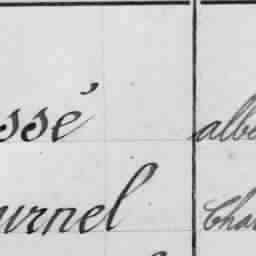 ssé albe
urnel Cha